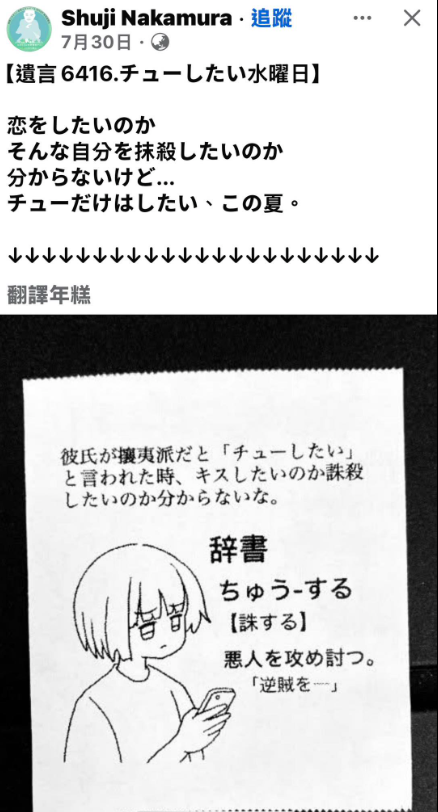 Shuji Nakamura · 追蹤
7月30日 ·
【遺言6416.チューしたい水曜日】
恋をしたいのか
そんな自分を抹殺したいのか
分からないけど...
チューだけはしたい、この夏。
↓↓↓↓↓↓↓↓↓↓↓↓↓↓↓↓↓↓↓↓↓↓
翻譯年糕
彼氏が攘夷派だと「チューしたい」
と言われた時、キスしたいのか誅殺
したいのか分からないな。
辞書
ちゅう-する
【誅する】
悪人を攻め討つ。
「逆賊を―」